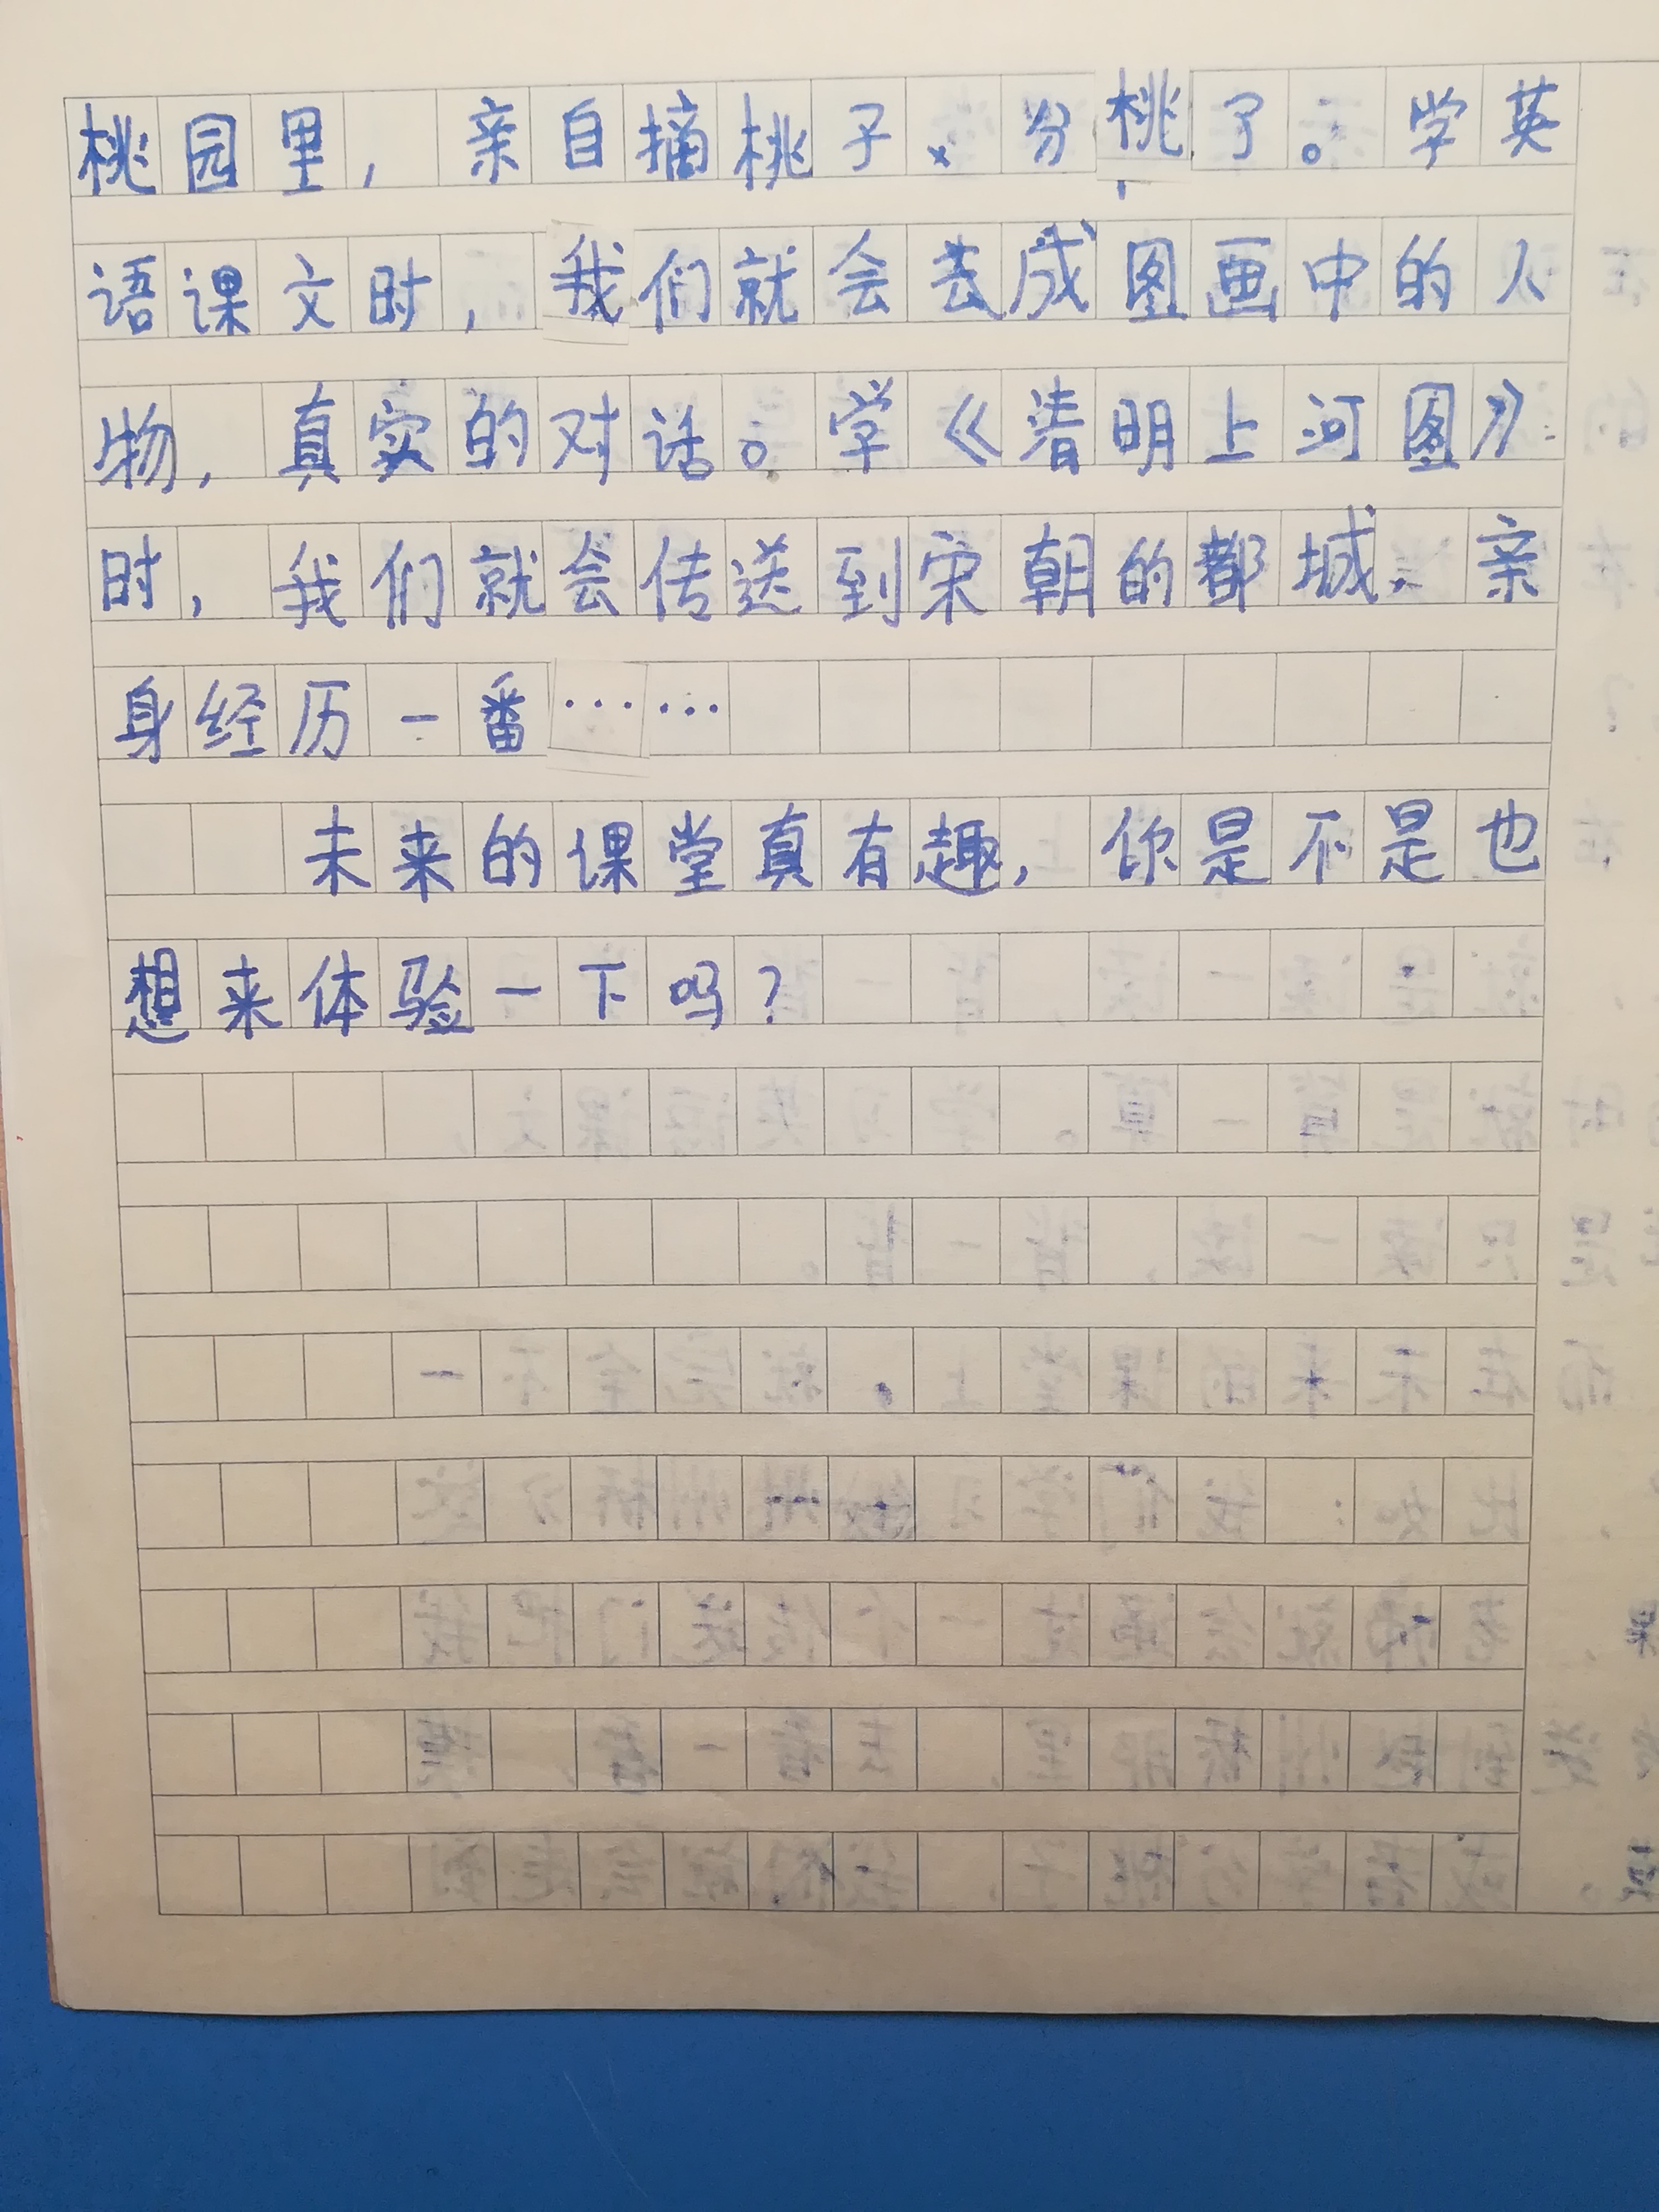 桃园里，亲自摘桃子、分桃了。学英
语课文时，我们就会去成图画中的人
物，真实的对话。学《清明上河图》
时，我们就会传送到宋朝的都城，亲
身经历一番……
未来的课堂真有趣，你是不是也
想来体验一下吗？